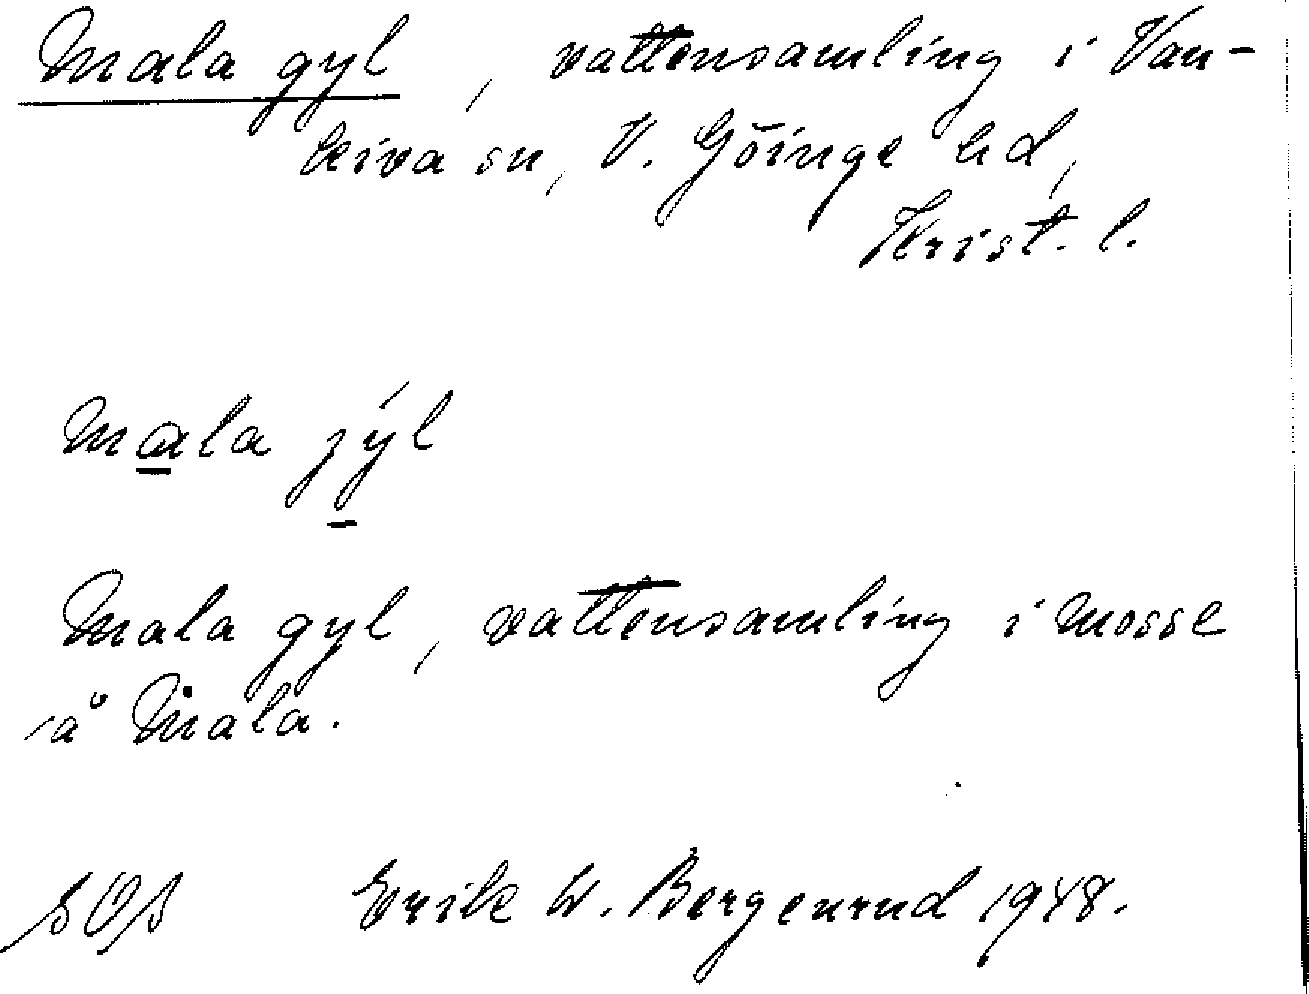 Mala gyl, vattensamling i Van-
keiva sn, V. Göinge hd,
Krist. l.
mala jýl
Mala gyl, vattensamling i mosse
å Mala.
Erik W. Bergenrud 1948.